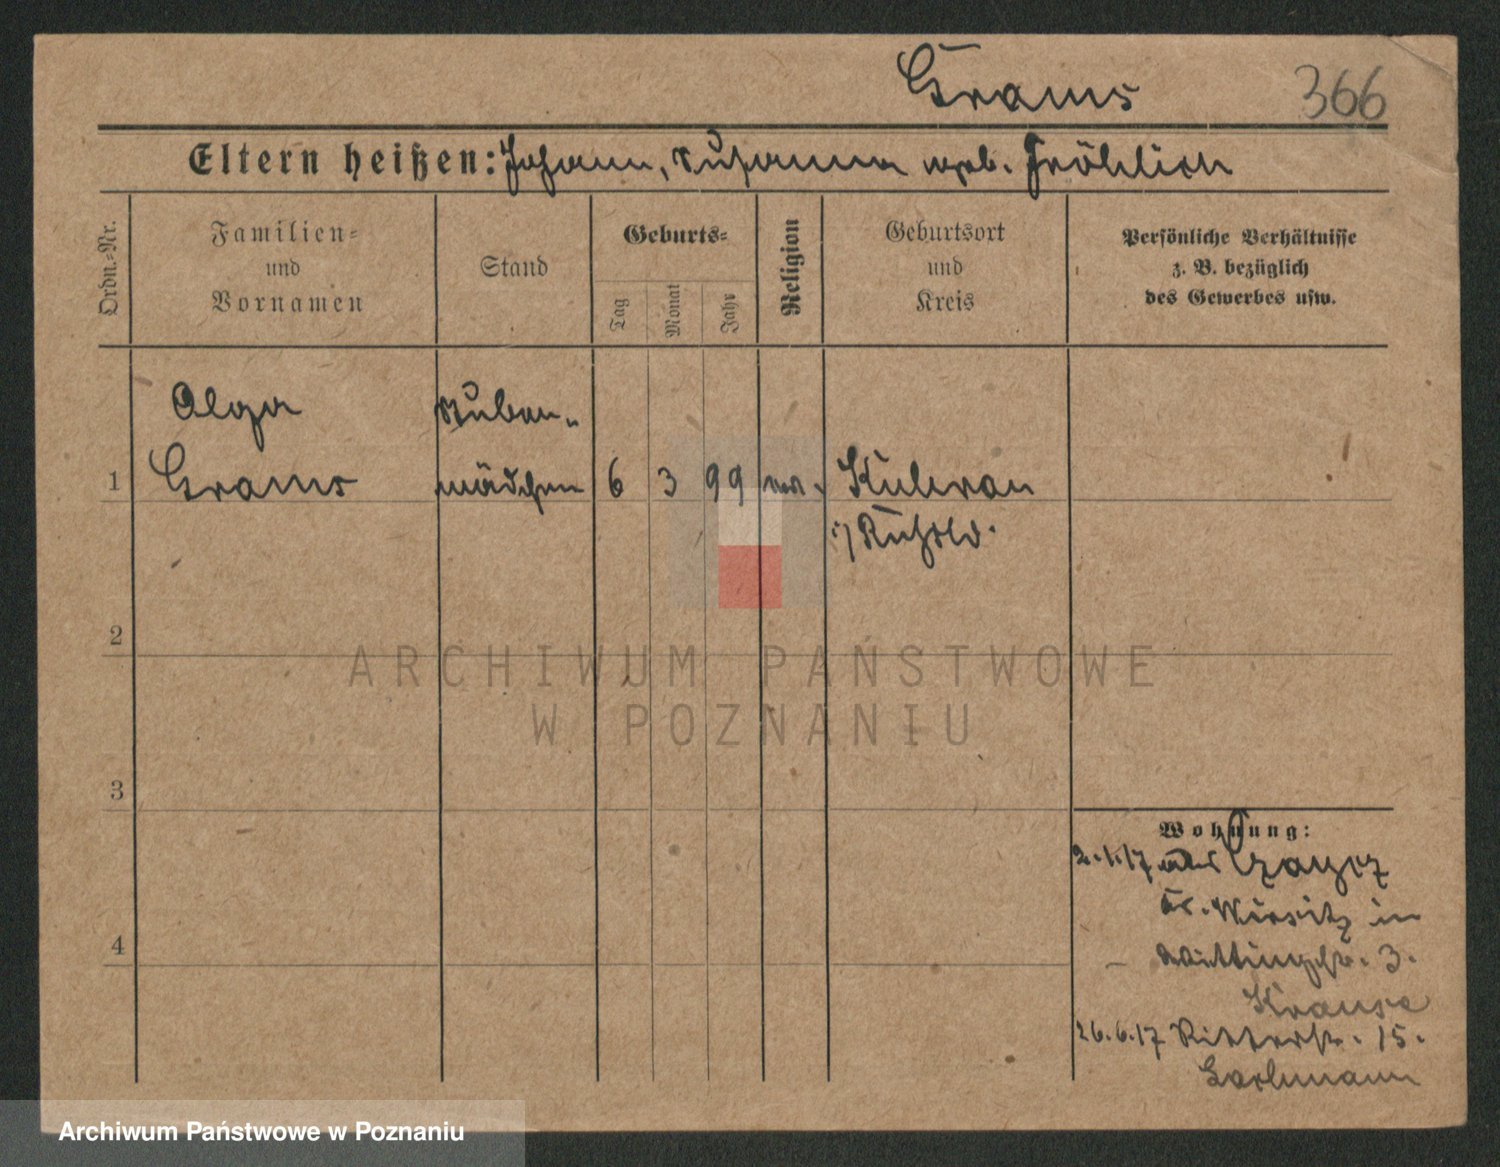 Grams 366
Eltern heißen: Johann, Susanna geb. Fröhlich
Ordn.-Nr.
Familien- und Vornamen
Stand
Geburts-
Tag
Monat
Jahr
Religion
Geburtsort und Kreis
Persönliche Verhältnisse z. B. bezüglich des Gewerbes usw.
Olga Stuben-
1 Grams mädchen 6 3 99 ev.
i/ Rußld.
2
3
4
Wohnung:
2.1.17 aus
Kr. Wirsitz in
3.
Krause
26.6.17 Ritterstr. 15.
ARCHIWUM PAŃSTWOWE
W POZNANIU
Archiwum Państwowe w Poznaniu